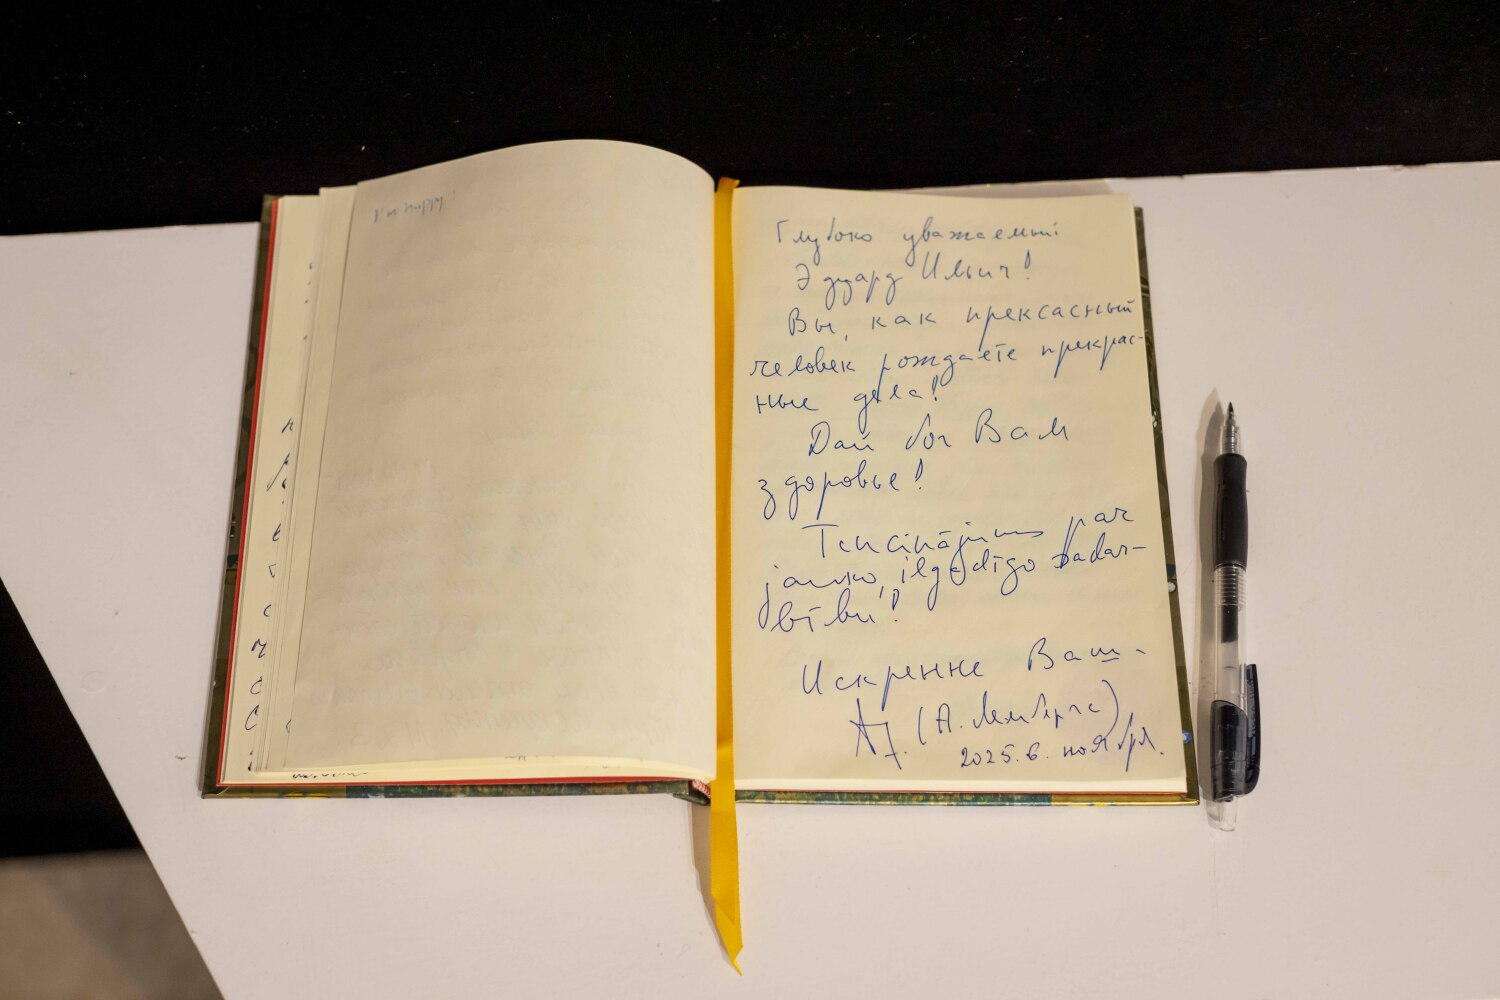 I'm happy!
Глубоко уважаемый
Эдуард Ильич!
Вы, как прексасный
человек рождаете прекрас-
ные дела!
Дай бог Вам
здоровье!
par
jauko, ilgadīgo sadar-
bību!
Искренне Ваш -
(А. Лемберга)
2025. 6. ноября.